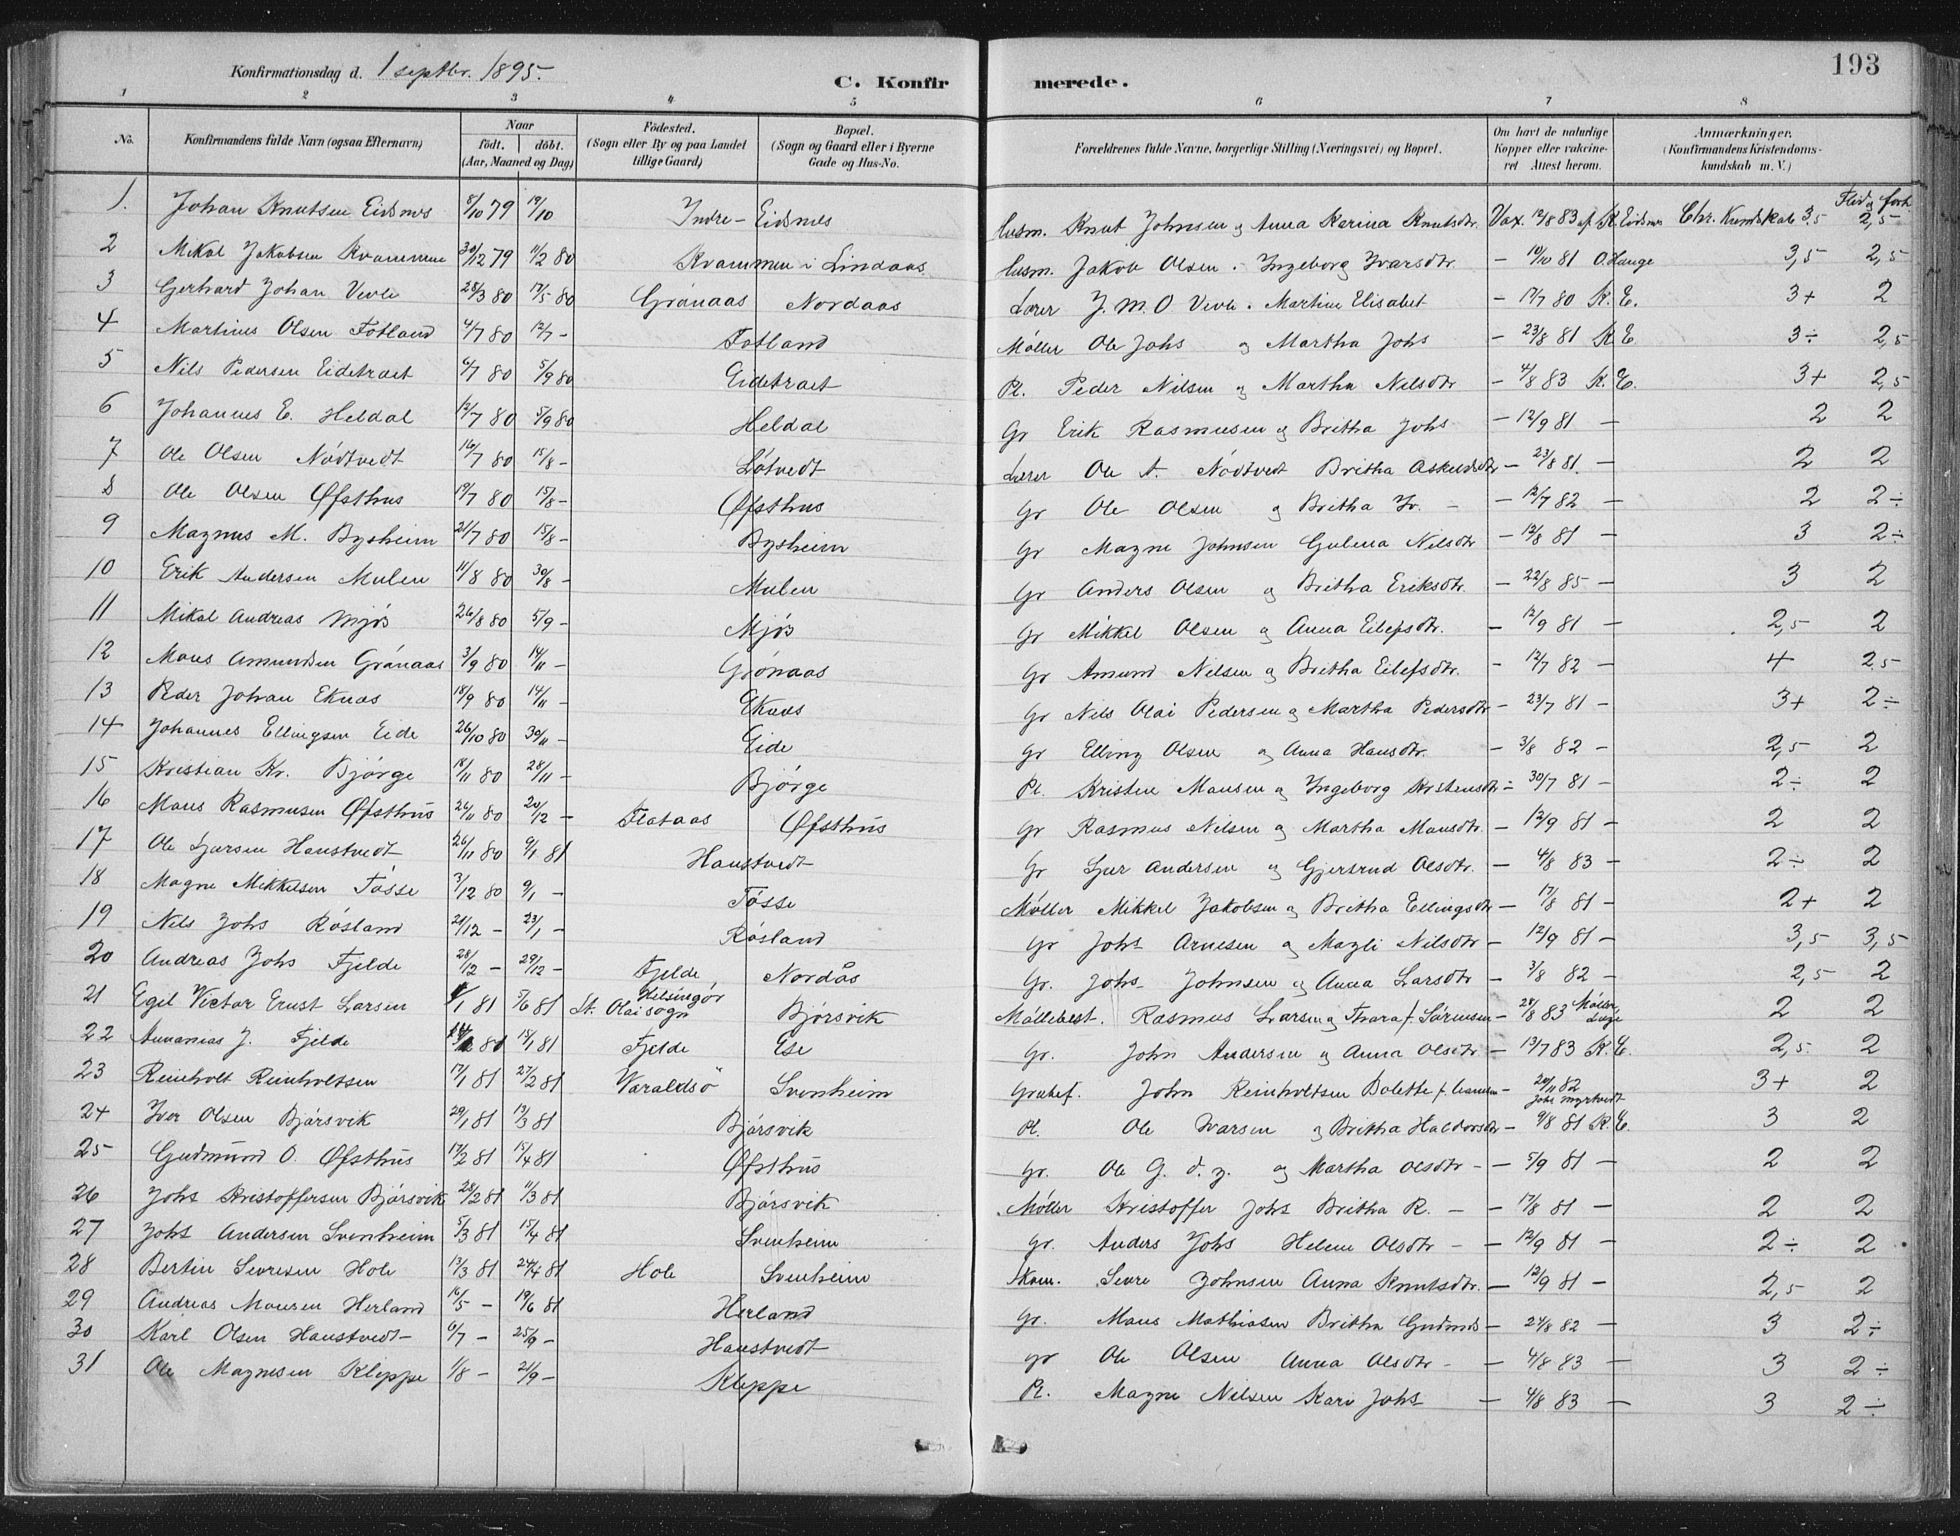 Konfirmationsdag d. 1 septbr. 1895.
C. Konfirmerede.
193
1 2 3 4 5 6 7 8
No. | Konfirmandens fulde Navn (ogsaa Efternavn) | Naar födt. döbt. (Aar, Maaned og Dag) | Födested. (Sogn eller By og paa Landet tillige Gaard) | Bopæl. (Sogn og Gaard eller i Byerne Gade og Hus-No. | Forældrenes fulde Navne, borgerlige Stilling (Næringsvei) og Bopæl. | Om havt de naturlige Kopper eller vakcineret Attest herom. | Anmærkninger. (Konfirmandens Kristendomskundskab m. V.)
Flid og forh.
1. Johan Knutsen Eidsnes 8/10 79 19/10 Indre-Eidsnes Husm. Knut Johnsen og Anna Karina Knutsdtr. Vax. 12/8 83 af K. Eidsnes Chr. Kundskab 3,5 2,5
2 Mikal Jakobsen Kvammen 30/12 79 11/2 80 Kvammen i Lindaas Husm. Jakob Olsen . Ingeborg Ivarsdtr - 10/10 81 O. Hauge 3,5 2,5
3 Gerhard Johan Vevle 28/3 80 17/5 80 Grönaas Nordaas Lærer J. M. O Vevle . Martine Elisabet - 17/7 80 K. E. 3+ 2
4 Martinus Olsen Fotland 4/7 80 12/7 - Fotland Møller Ole Johs og Martha Johs - 23/8 81 K E 3÷ 2,5
5 Nils Pedersen Eidetræet 6/7 80 5/9 80 Eidetræet Pl. Peder Nilsen og Martha Nilsdtr - 4/8 83 K. E. 3+ 2,5
6 Johannes E. Heldal 12/7 80 5/9 80 Heldal Gr Erik Rasmusen og Britha Johs - 12/9 81 - 2 2
7 Ole Olsen Nödtvedt 16/7 80 15/8 - Lötvedt Lærer Ole A. Nödtvedt Britha Askeldsdtr - 23/8 81 - 2 2
8 Ole Olsen Øfsthus 19/7 80 15/8 - Øfsthus Gr Ole Olsen og Britha Iv. - - 12/7 82 - 2 2÷
9 Magnus M. Bysheim 21/7 80 15/8 - Bysheim Gr Magne Johnsen Gulena Nilsdtr - 12/8 81 - 3 2÷
10 Erik Andersen Mulen 11/8 80 30/8 - Mulen Gr Anders Olsen og Britha Eriksdtr - 22/8 85 - 3 2
11 Mikal Andreas Mjös 26/8 80 5/9 - Mjös Gr Mikkel Olsen og Anna Eilefsdtr. - 12/9 81 - 2,5 2
12 Mons Amundsen Grönaas 3/9 80 14/11 - Grönaas Gr Amund Nilsen og Britha Eilefsdtr. - 12/7 82 - 4 2,5
13 Peder Johan Eknes 18/9 80 14/11 - Eknes Gr Nils Olai Pedersen og Martha Pedersdtr - 23/7 81 - 3+ 2÷
14 Johannes Ellingsen Eide 26/10 80 30/11 - Eide Gr Elling Olsen og Anna Hansdtr. - 3/8 82 - 2,5 2
15 Kristian Kr. Bjørge 18/11 80 28/11 - Bjørge Pl. Kristen Monsen og Ingeborg Kristensdtr - 30/7 81 - 2÷ 2
16 Mons Rasmusen Øfsthus 26/11 80 20/12 - Flataas Øfsthus Gr Rasmus Nilsen og Martha Monsdtr - 12/9 81 - 2 2
17 Ole Sjursen Haustvedt 26/11 80 9/1 81 Haustvedt Gr Sjur Andersen og Gjertrud Olsdtr. - 4/8 83 - 2÷ 2
18 Magne Mikkelsen Tösse 3/12 80 9/1 - Tösse Møller Mikkel Jakobsen og Britha Ellingsdtr - 17/8 81 - 2+ 2
19 Nils Johs Rösland 21/12 - 23/1 - Rösland Gr Johs Arnesen og Magli Nilsdtr - 12/9 81 - 3,5 3,5
20 Andreas Johs Fjelde 28/12 - 29/12 - Fjelde Nordås Gr. Johs Johnsen og Anna Larsdtr - 3/8 82 - 2,5 2
21 Egil Victor Ernst Larsen 1/1 81 5/6 81 St. Olai sogn Helsingör Bjørsvik Møllebest. Rasmus Larsen og Thora f. Sörensen - 20/8 83 2 2
22 Annanias J. Fjelde 80 15/1 81 Fjelde Ese Gr. John Andersen og Anna Olsdtr - 13/7 83 K. E. 2,5 2
23 Reinholt Reinholtsen 17/1 81 27/2 81 Varaldsö Svenheim John Reinholtsen Bolette f. - 20/11 82 Johs Myrtvedt 3+ 2
24 Iver Olsen Bjørsvik 29/1 81 13/3 81 Bjørsvik Pl. Ole Ivarsen og Britha Haldorsdtr - 9/8 81 K. E. 3 2
25 Gudmund O. Øfsthus 17/2 81 15/4 81 Øfsthus Gr. Ole G. d. y. og Martha Olsdtr - - 5/9 81 - 2 2
26 Johs Kristoffersen Bjørsvik 28/2 81 11/3 81 Bjørsvik Møller Kristoffer Johs Britha R. - - 17/8 81 - 2 2
27 Johs Andersen Svenheim 5/3 81 15/4 81 Svenheim Gr. Anders Johs Helene Olsdtr - - 12/9 81 - 2÷ 2
28 Bertin Sevresen Hole 13/3 81 24/4 81 Hole Svenheim Skom. Sevre Johnsen Anna Knutsdtr. - 12/9 81 - 2,5 2
29 Andreas Monsen Herland 16/5 - 19/6 81 Herland Gr. Mons Mathiasen Britha Gudmds - 24/8 82 - 3 2÷
30 Karl Olsen Haustvedt 6/7 - 25/9 - Haustvedt Gr Ole Olsen Anna Olsdtr - - 4/8 83 - 3 2÷
31 Ole Magnesen Kleppe 1/8 - 21/9 - Kleppe Pl. Magne Nilsen Kari Johs - 4/8 83 - 3 2÷